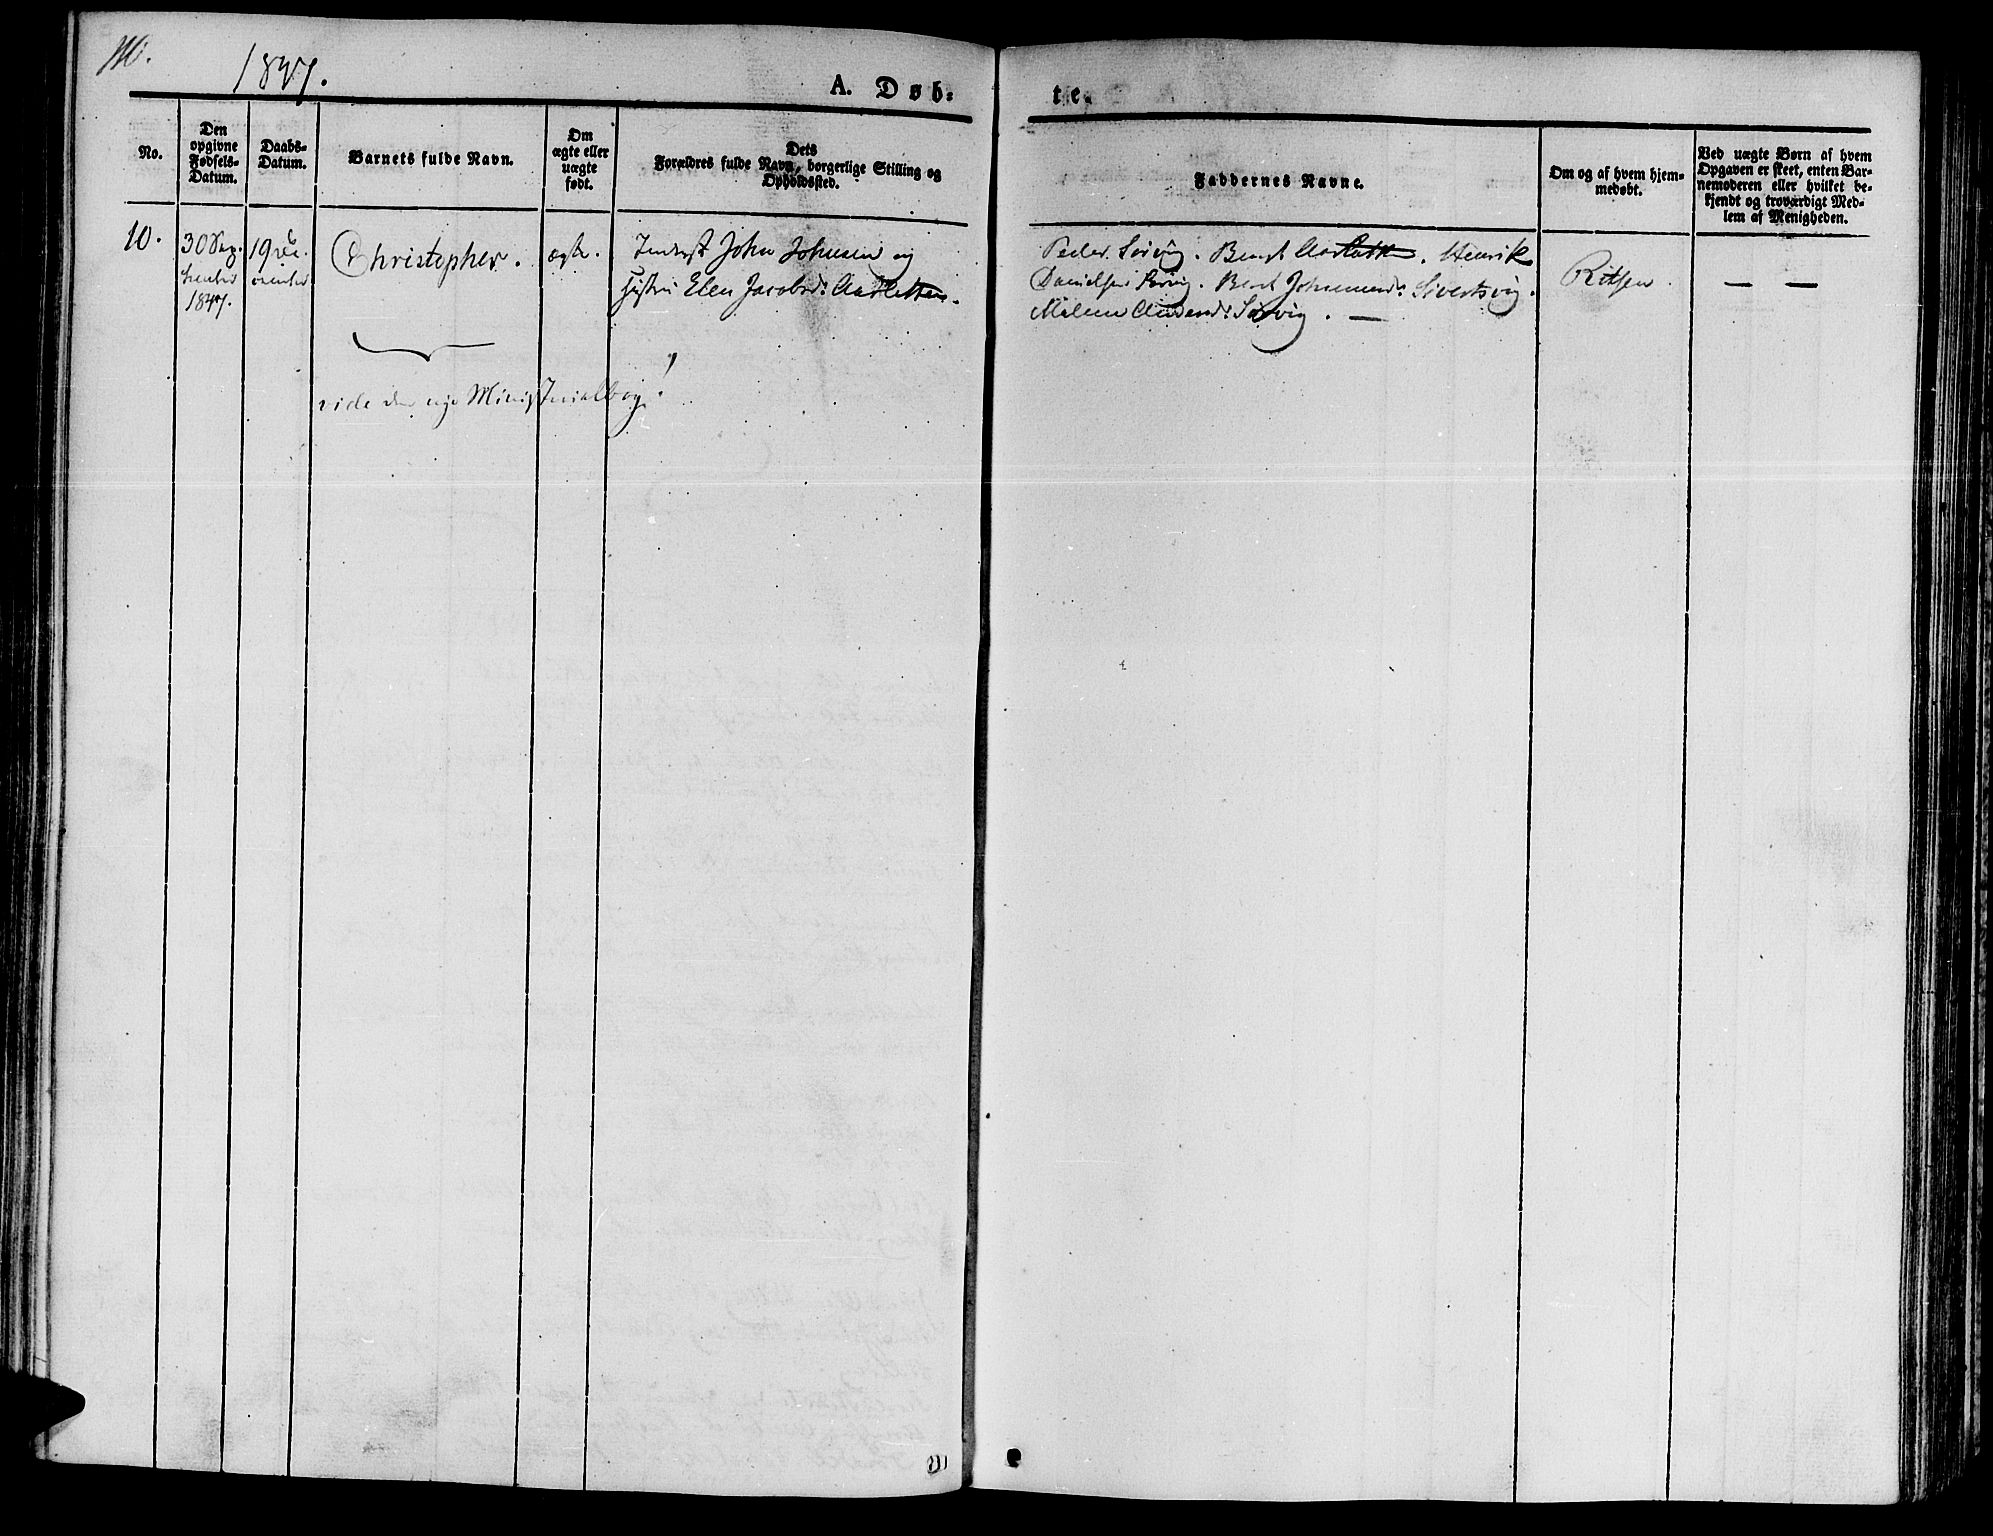 1847.
A. Døb=
te.
No.
Den opgivne Fødsels-Datum.
Daabs-Datum.
Barnets fulde Navn.
Om ægte eller uægte født.
Dets Forældres fulde Navn, borgerlige Stilling og Opholdssted.
Faddernes Navne.
Om og af hvem hjem-medøbt.
Ved uægte Børn af hvem Opgaven er skeet, enten Bar-nemoderen eller hvilket be-kjendt og troværdigt Med-lem af Menigheden.
10.
30 Sep-
tember
1847.
19 De
cember
Christopher.
ægte.
Inderst John Johnsen og
Hustru Elen Jacobsd: Aarsletten.
Peder Sørvig. Bernt Henrik
Danielsen Sørvig. Berit Sivertsvig.
Malene Andersd: Sørvig. —
Ritsen.
— —
vide den nye Ministerialbog!